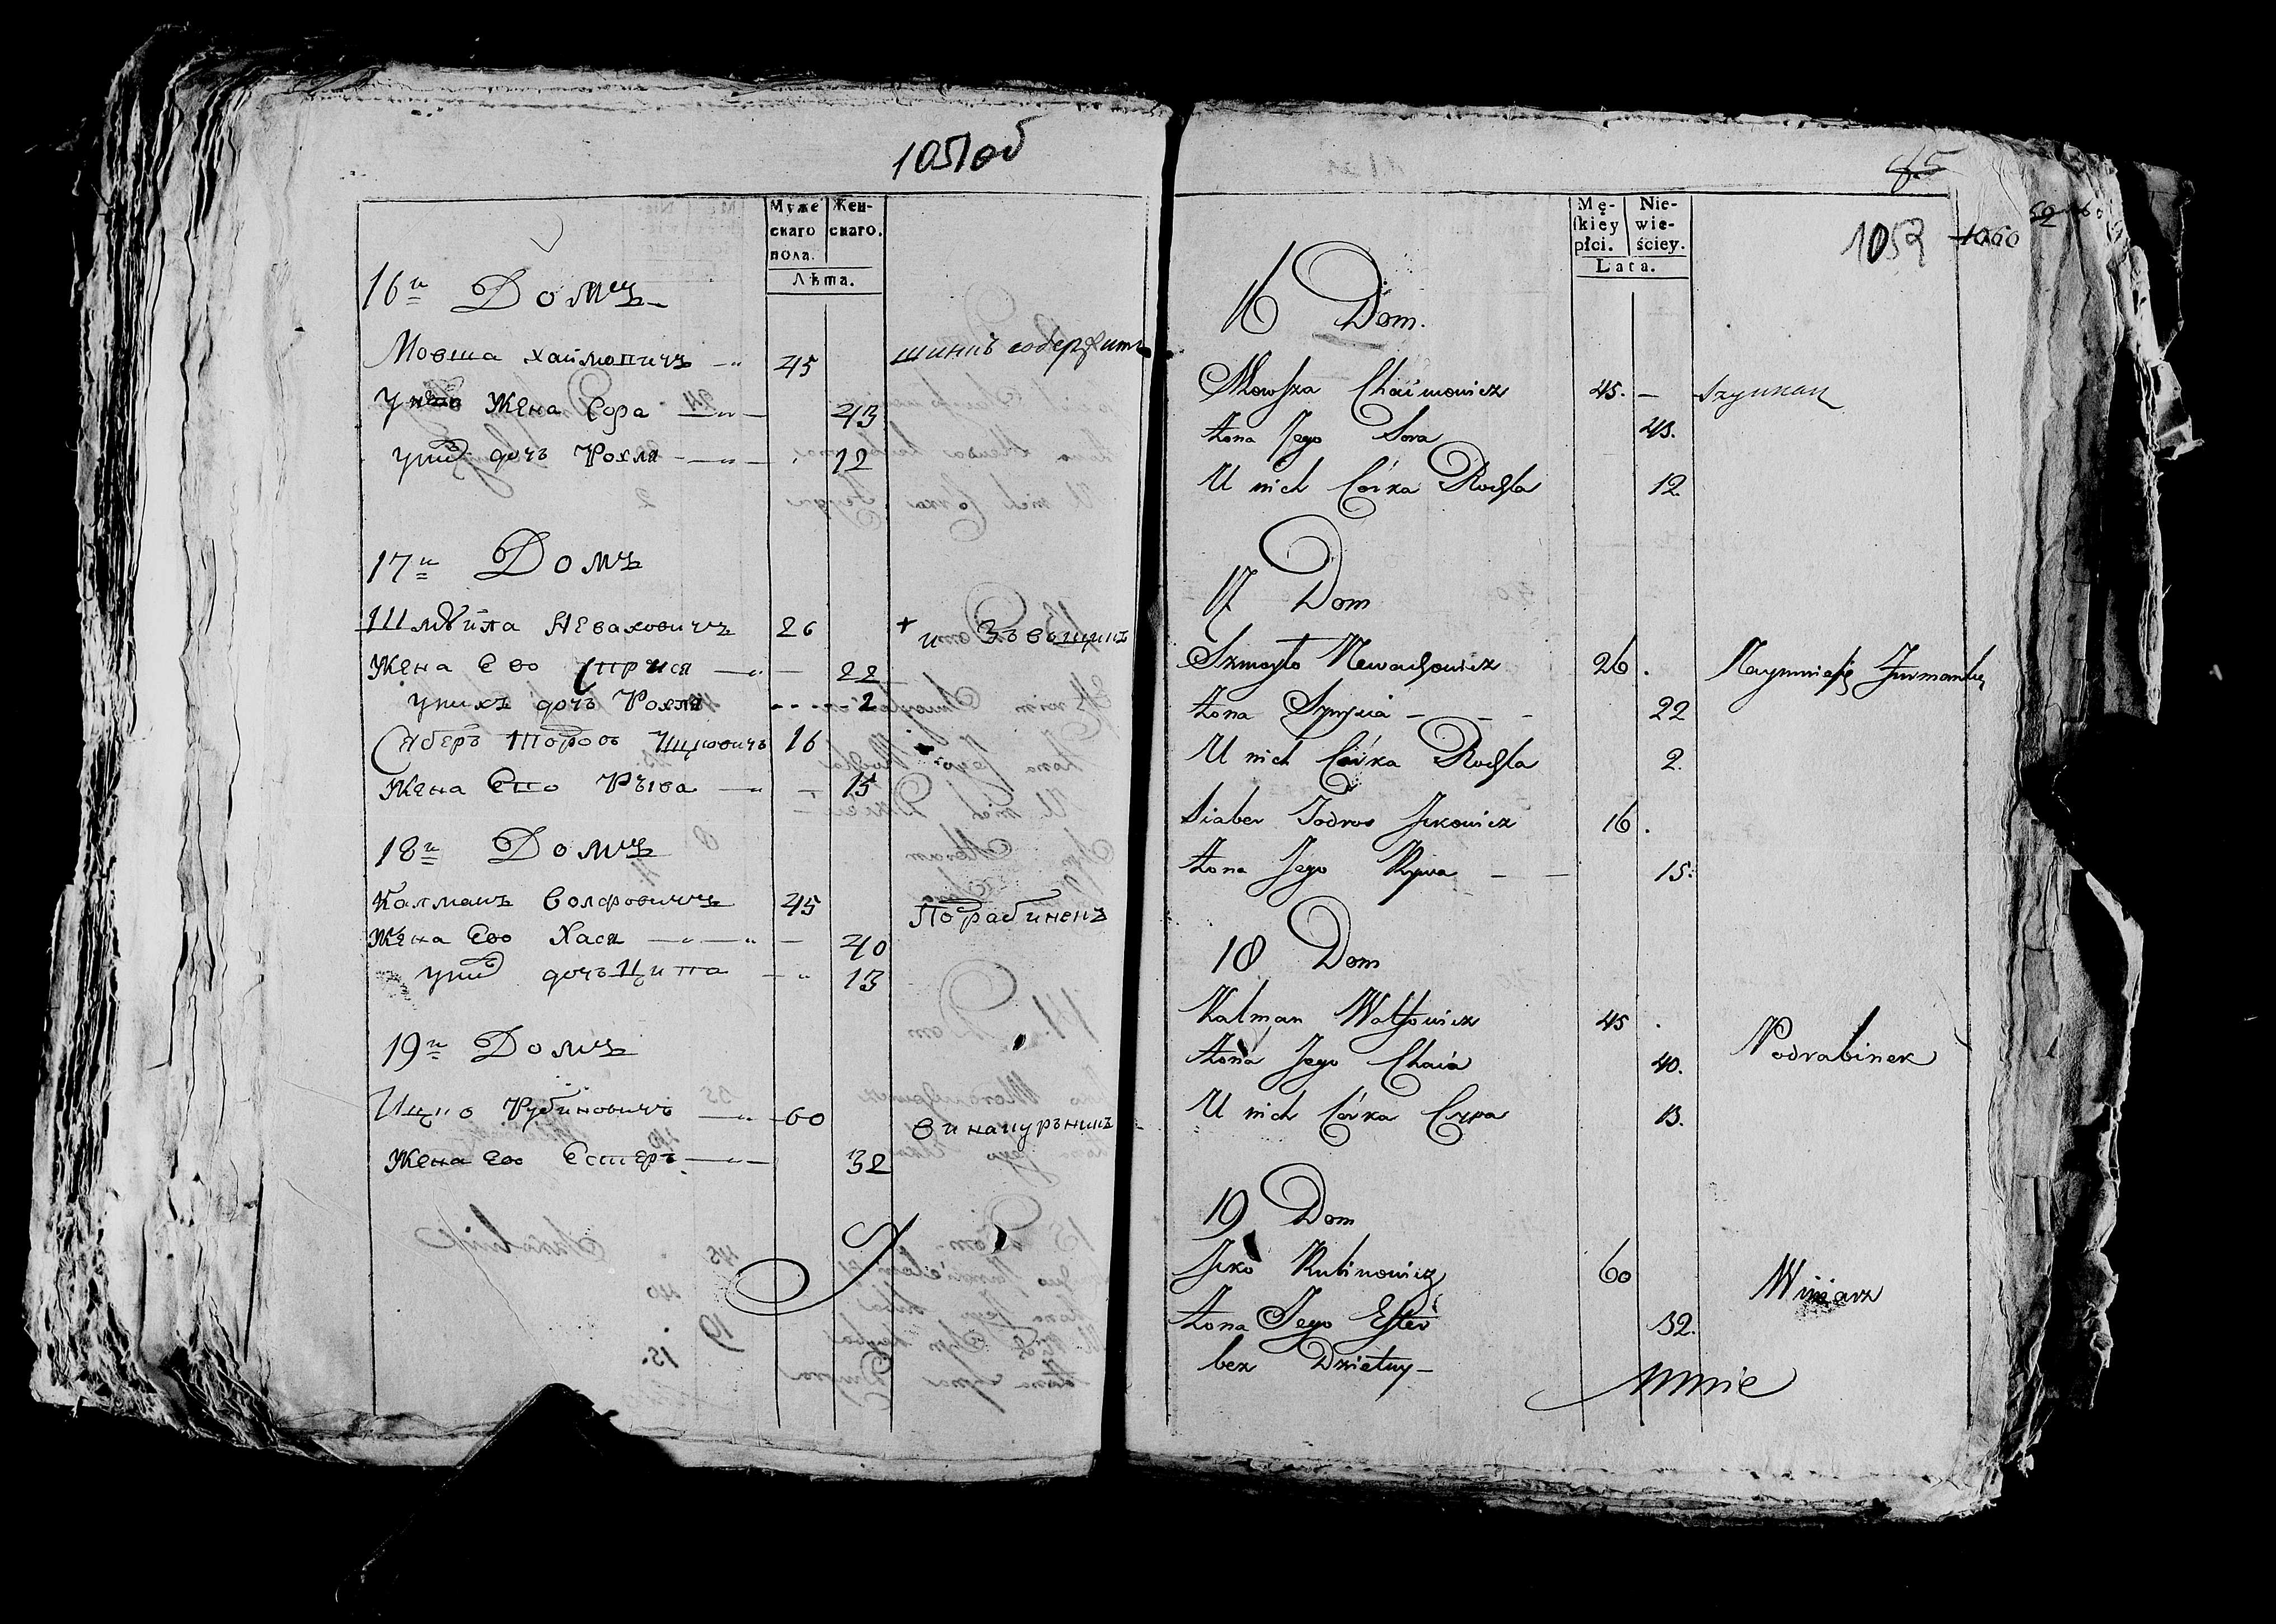 1051об
Муже
скаго
пола.
Жен-
скаго.
Лѣта.
16й Домъ
Мовша Хаймовичъ 45 шинкъ содержитъ
Жена Сора 43
дочь Рохля 12
17й Домъ
Шмуйла Неваховичъ 26
Жена Его 22
унихъ дочь Рохля 2
Сяберъ Тодросъ Ицковичъ 16
Жена Его Рыва 15
18й Домъ
Калманъ Волфовичъ 45 Подрабинекъ
Жена Его Хася 40
дочь Ципа 13
19й Домъ
Ицко Рубиновичъ 60
Жена Его Естеръ 32
85
Mę-
ſkiey
płci.
Nie-
wie-
ściey.
Lata.
1052 1060
16 Dom.
Mowsza Chaimowicz 45. — Szynkarz
Żona Jego Sora 43.
U nich Córka Rochla 12.
17 Dom
Szmoyło Newachowicz 26. Furmankę
Żona 22
U nich Córka Rochla 2.
Siaber Todros Jckowicz 16.
Żona Jego Rywa — — 15.
18 Dom
Kalman Wolfowicz 45. Podrabinek
Żona Jego Chaia 40.
U nich Córka Cypa 13.
19 Dom
Jcko Rubinowicz 60 Winiarz
Żona Jego Ester 32.
bez Dzietny —